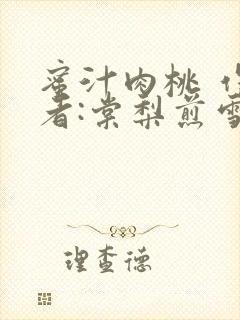 蜜汁肉桃
者:棠梨煎雪
理查德